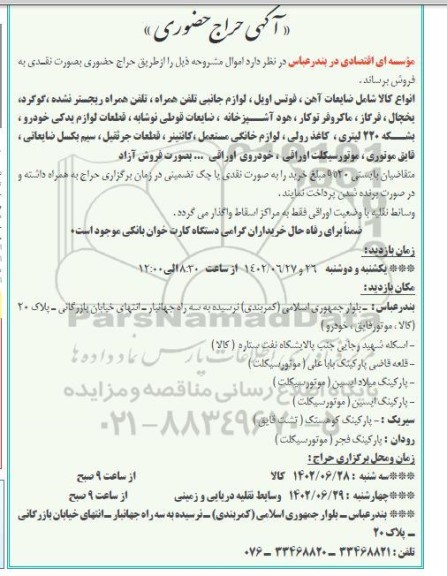 « آگهی حراج حضوری »
مؤسسه ای اقتصادی در بندرعباس در نظر دارد اموال مشروحه ذیل را ازطریق حراج حضوری بصورت نقدی به
فروش برساند .
انواع کالا شامل ضایعات آهن ، فوتس اویل ، لوازم جانبی تلفن همراه ، تلفن همراه ریجستر نشده ،گوگرد،
یخچال ، فرگاز ، ماکروفر توکار ، هود آشپزخانه ، ضایعات قوطی نوشابه ، قطعات لوازم یدکی خودرو ،
بشکه ۲۲۰ لیتری ، کاغذ رولی ، لوازم خانگی مستعمل ،کانتینر ، قطعات جرثقیل ، سیم بکسل ضایعاتی ،
قایق موتوری ، موتورسیکلت اوراقی ، خودروی اوراقی ... بصورت فروش آزاد
متقاضیان بایستی مبلغ خرید را به صورت نقدی یا چک تضمینی در زمان برگزاری حراج به همراه داشته و
در صورت برنده شدن پرداخت نمایند .
وسائط نقلیه با وضعیت اوراقی فقط به مراکز اسقاط واگذار می گردد .
ضمناً برای رفاه حال خریداران گرامی دستگاه کارت خوان بانکی موجود است
زمان بازدید :
*** یکشنبه و دوشنبه ۲۶ و ۱۴۰۲/۰۶/۲۷ از ساعت ۸:۳۰ الی ۱۲:۰۰
مکان بازدید :
بندرعباس : ـ بلوار جمهوری اسلامی (کمربندی) نرسیده به سه راه جهانبار ـ انتهای خیابان بازرگانی ـ پلاک ۲۰
(کالا ، موتورقایق ، خودرو)
- اسکله شهید رجایی جنب پالایشگاه نفت ستاره ( کالا )
- قلعه قاضی پارکینگ بابا علی ( موتورسیکلت )
- پارکینگ میلاد ایسین ( موتورسیکلت )
- پارکینگ ایسین ( موتورسیکلت )
سیریک : - پارکینگ کوهستک ( تشت قایق )
رودان : پارکینگ فجر ( موتورسیکلت )
زمان ومحل برگزاری حراج :
***سه شنبه : ۱۴۰۲/۰۶/۲۸ کالا از ساعت ۹ صبح
***چهارشنبه : ۱۴۰۲/۰۶/۲۹ وسایط نقلیه دریایی و زمینی از ساعت ۹ صبح
*** بندرعباس ـ بلوار جمهوری اسلامی (کمربندی) ـ نرسیده به سه راه جهانبار ـ انتهای خیابان بازرگانی
ـ پلاک ۲۰
تلفن : ۳۳۴۶۸۸۲۱ ـ ۳۳۴۶۸۸۲۰ ـ ۰۷۶
ParsNamadData
پایگاه اطلاع رسانی مناقصه و مزایده
۰۲۱-۸۸۳۴۹۶۷۰-۵